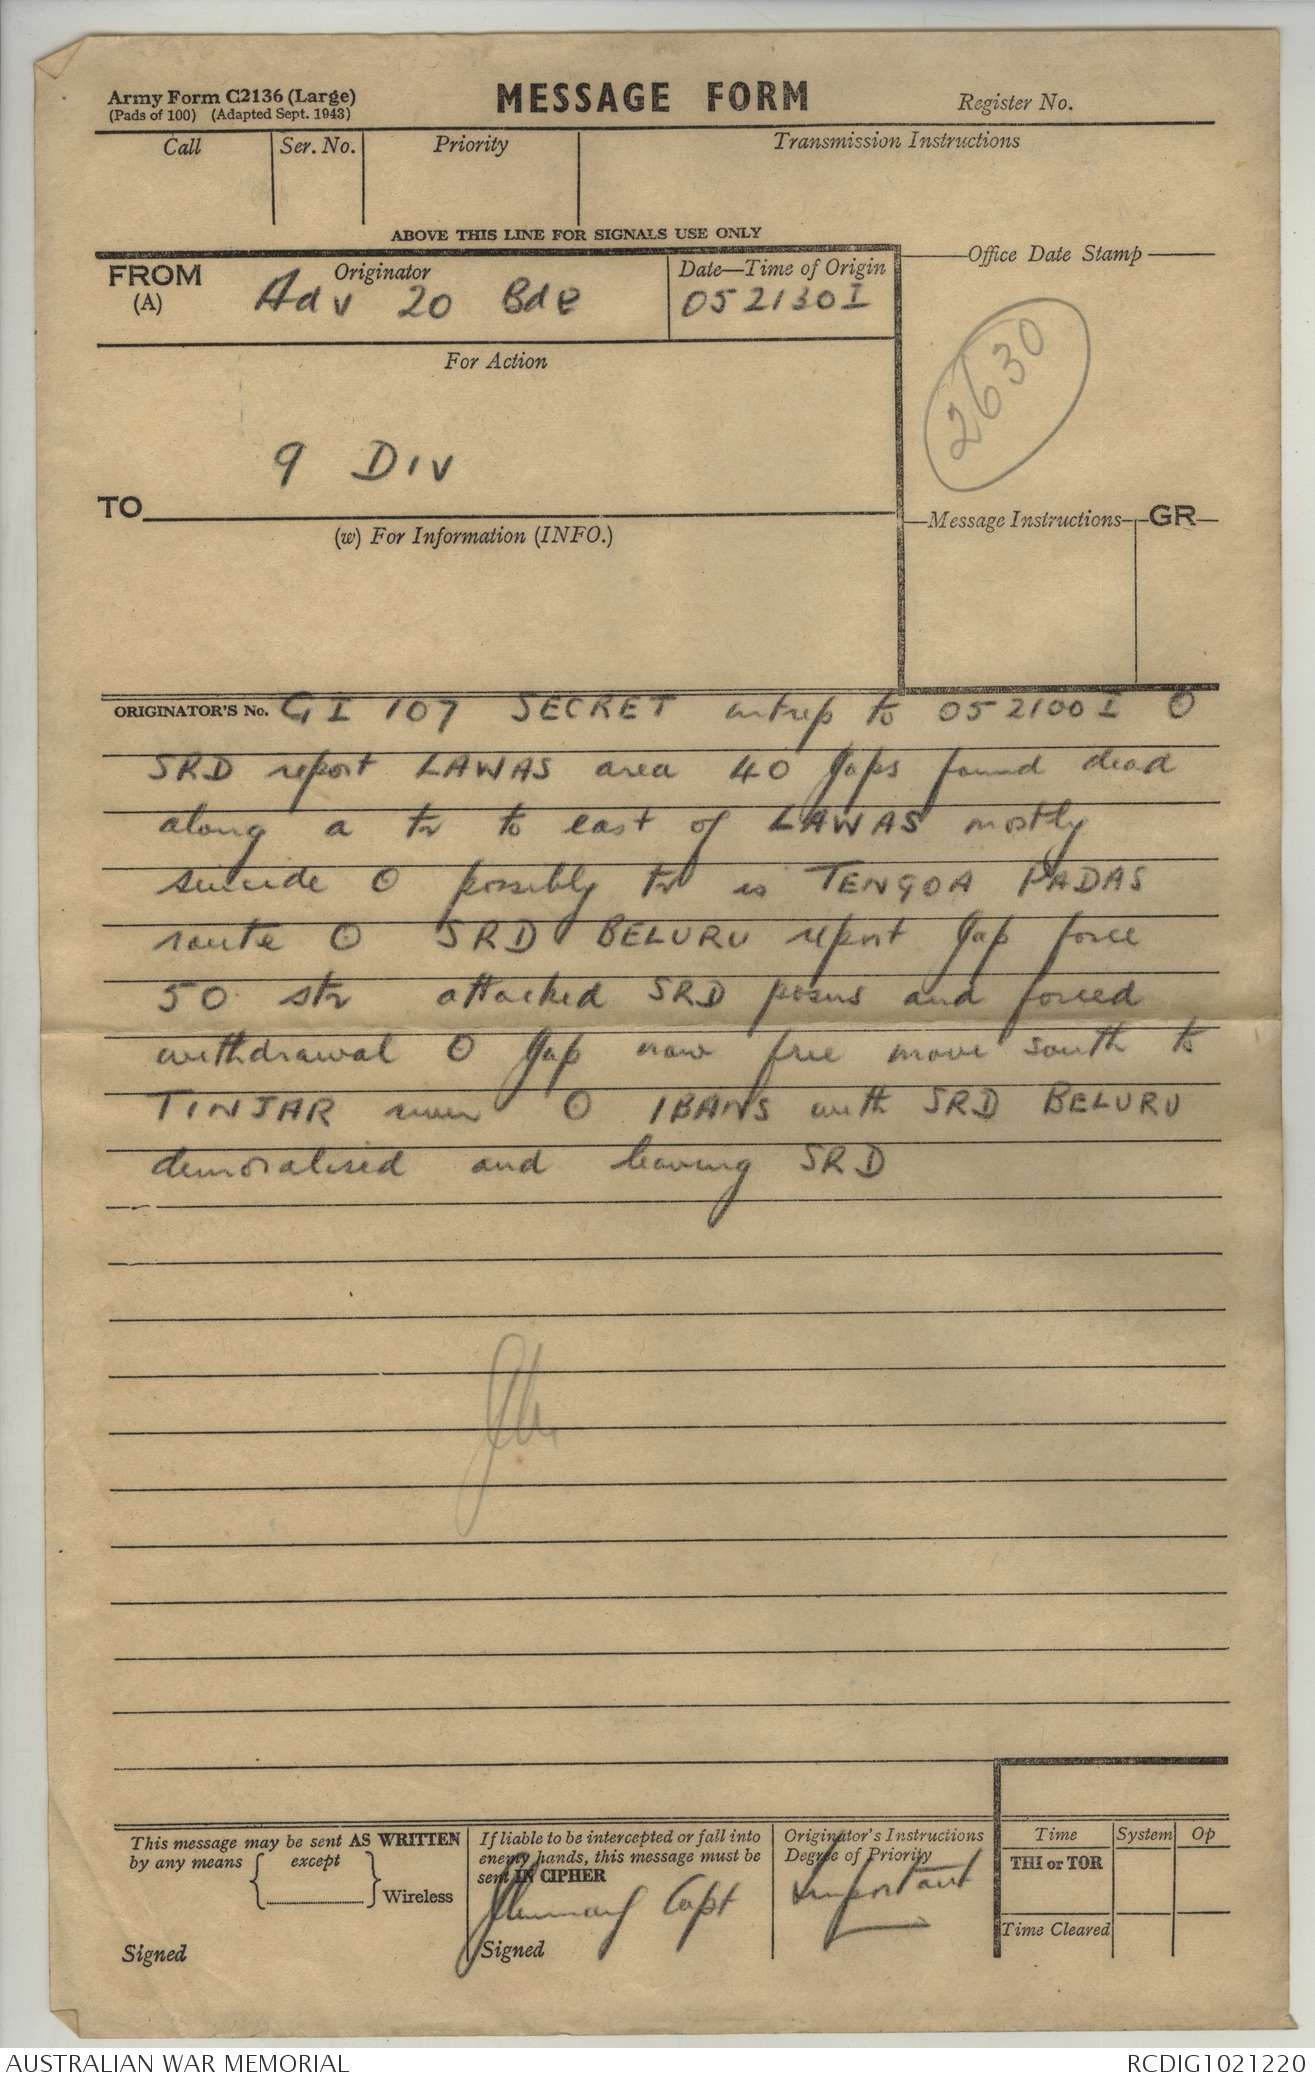 Army Form C2136 (Large)
(Pads of 100) (Adapted Sept. 1943)
MESSAGE FORM
Register No.
Call
Ser. No.
Priority
Transmission Instructions
ABOVE THIS LINE FOR SIGNALS USE ONLY
FROM
(A)
Originator
Adv 20 Bde
Date—Time of Origin
052130I
Office Date Stamp
2630
For Action
9 Div
TO
(w) For Information (INFO.)
Message Instructions
GR
ORIGINATOR'S No. GI 107 SECRET intrep to 052100I O
SRD report LAWAS area 40 Japs found dead
along a tr to east of LAWAS mostly
suicide O possibly tr is TENGOA PADAS
route O SRD BELURU report Jap force
50 str attacked SRD posns and forced
withdrawal O Jap now free move south to
TINJAR river O IBANS with SRD BELURU
demoralised and leaving SRD
This message may be sent AS WRITTEN
by any means { except }
Wireless
Signed
If liable to be intercepted or fall into
enemy hands, this message must be
sent IN CIPHER
Capt
Signed
Originator's Instructions
Degree of Priority
Important
Time
System
Op
THI or TOR
Time Cleared
AUSTRALIAN WAR MEMORIAL
RCDIG1021220